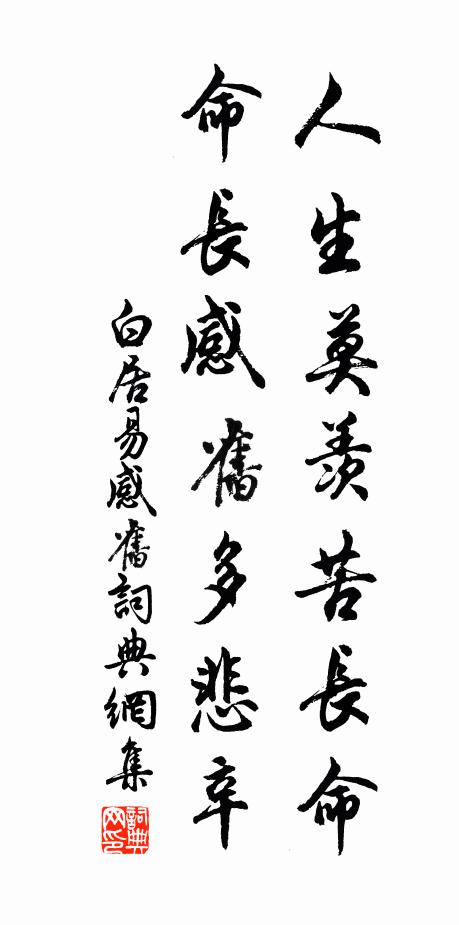 人生莫羨苦長命
命長感舊多悲辛
白居易感舊詞典網集
詞典网印